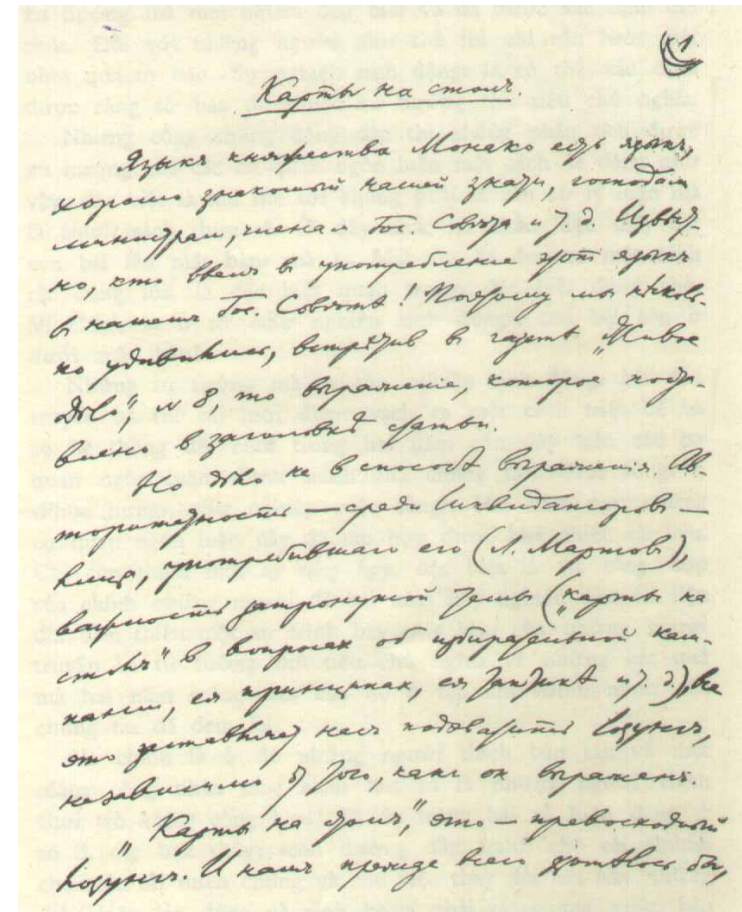 1
Карты на столъ.
Языкъ княжества Монако есть языкъ,
хорошо знакомый нашей знати, господам
министрам, членам Гос. Совѣта и т. д. Извѣст-
но, кто ввелъ в употребленіе этот языкъ
в нашемъ Гос. Совѣтѣ! Поэтому мы нѣсколь-
ко удивились, встрѣтив в газетѣ „Живое
Дѣло", № 8, то выраженіе, которое постав-
влено в заголовкѣ статьи.
Но дѣло не в способѣ выраженія. Ав-
торитетность — среди ликвидаторовъ —
лица, употребившаго его (Л. Мартовъ),
важность затронутой темы („карты на
столъ" в вопросах об избирательной кам-
паніи, ея принципах, ея тактикѣ и т. д.), все
это заставляет нас подхватить лозунгъ,
независимо от того, какъ он выраженъ.
„Карты на столъ", это — превосходный
лозунгъ. И намъ прежде всего хотѣлось бы,